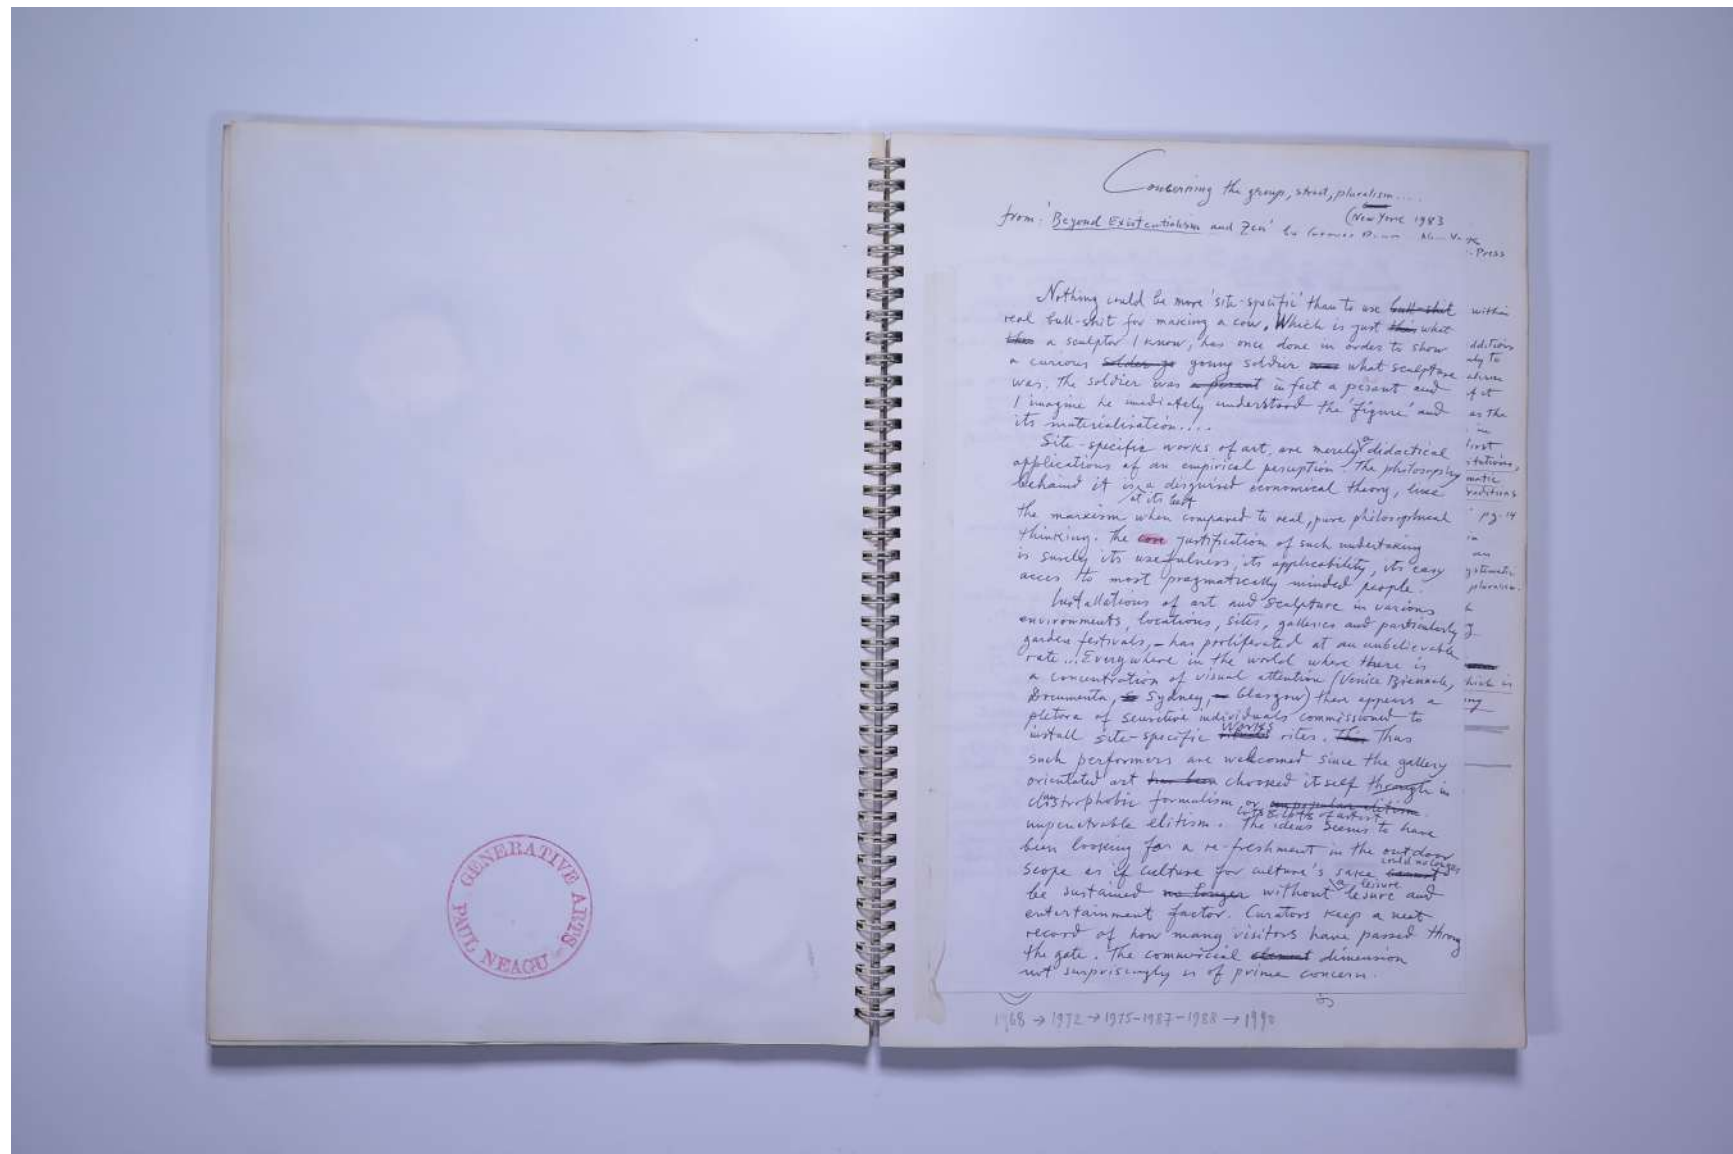 GENERATIVE ARTS
PAUL NEAGU
Concerning the group, struct, pluralism....
(New York 1983
from: 'Beyond Existentialism and Zen' by
Press
Nothing could be more 'site-specific' than to use bull-shit
real bull-shit for making a cow. Which is just this what
a sculptor I know, has once done in order to show
a curious young soldier was what sculpture
was. The soldier was a pesant in fact a pesant and
I imagine he imediately understood the 'figure' and
its materialisation....
Site-specific works of art, are merely a didactical
applications of an empirical perception. The philosophy
behaind it is a disguised economical theory, like
at its best
the marxism when compared to real, pure philosophical
thinking. The core justification of such undertaking
is surely its usefulness, its applicability, its easy
acces to most pragmatically minded people.
Installations of art and sculpture in various
environments, locations, sites, galleries and particularly
garden festivals, – has proliferated at an unbelievable
rate... Everywhere in the world where there is
a concentration of visual attention (Venice Biennale,
Documenta, Sydney, Glasgow) then appears a
pletora of sensitive individuals commissioned to
works
install site-specific rites. Thus
such performers are welcomed since the gallery
orientated art has been choosed itself through in
claustrophobic formalism, or unpopular elitism
cults & cults of artist
unpenetrable elitism. The ideas seems to have
been looking for a re-freshment in the outdoor
could no longer
scope as if culture for culture's sake cannot
a leisure
be sustained no longer without lesure and
entertainment factor. Curators keep a neat
record of how many visitors have passed throug
the gate. The commercial element dimension
not surprisingly is of prime concern.
within
dditions
as the
in
first
matic
raditions
pg. 14
in
an
pluralism.
hich is
1968 → 1972 → 1975-1987-1988 → 1990